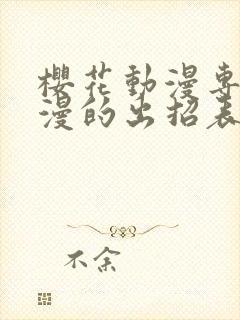 櫻花動漫專
漫的出招表
不余